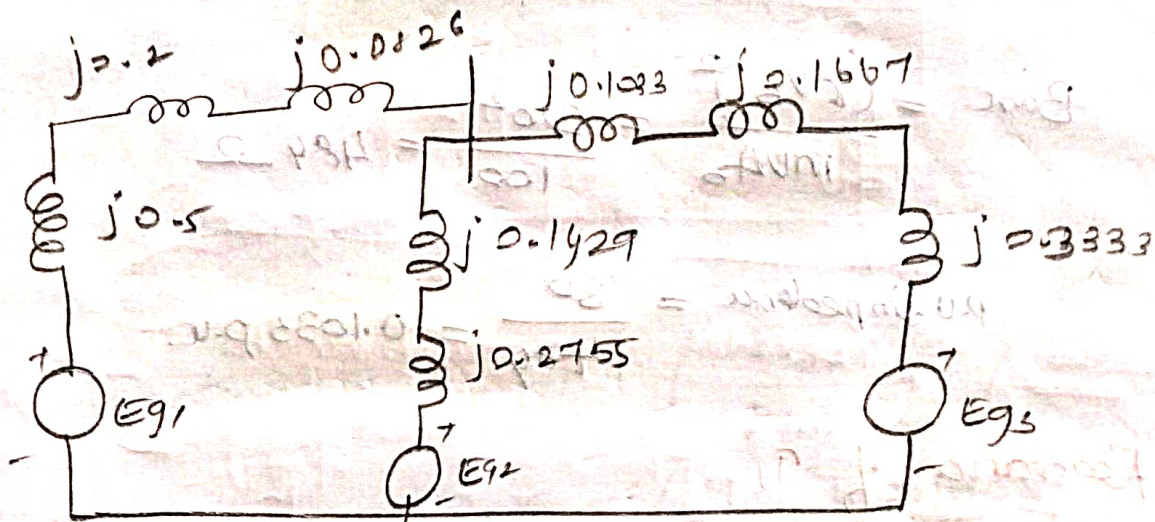 j0.2 j0.0826
j0.1033 j0.1667
j0.5
j0.1429
j0.3333
j0.2755
+ Eg1 -
+ Eg2 -
+ Eg3 -